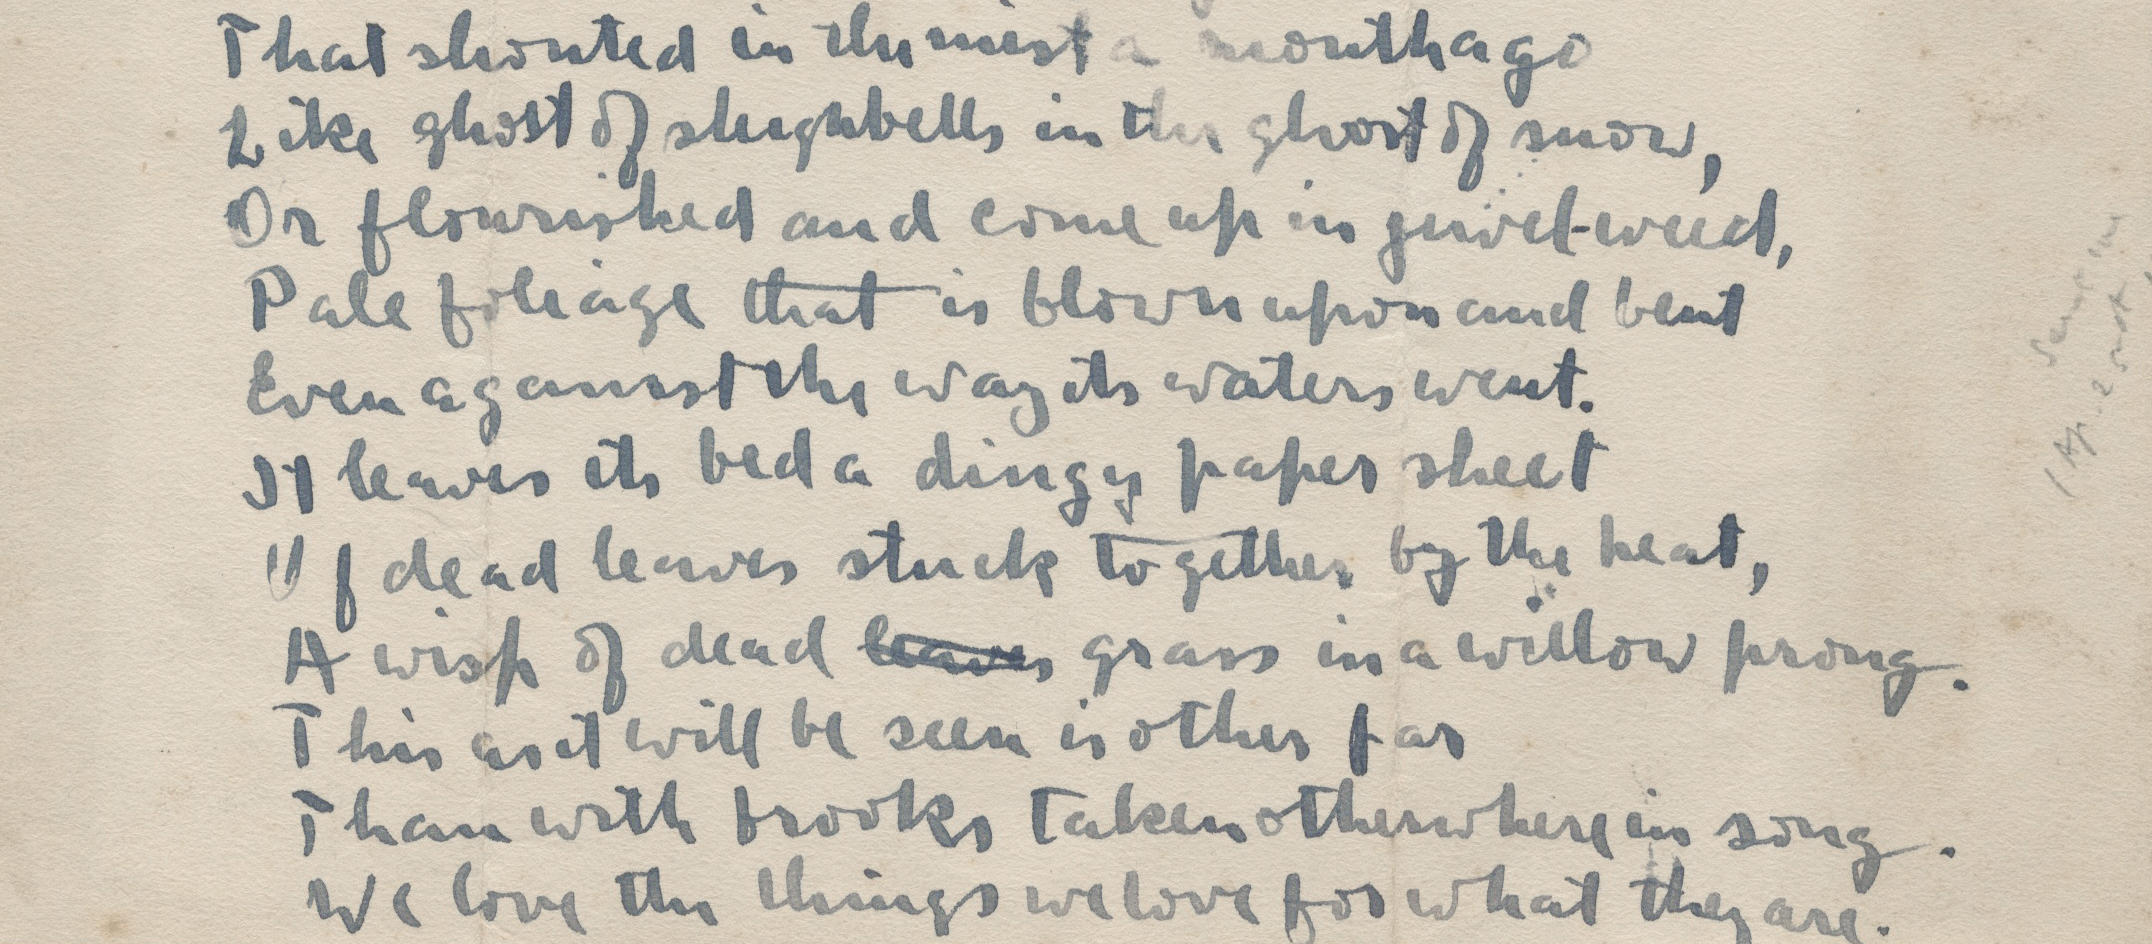 That shouted in the mist a month ago
Like ghost of sleighbells in the ghost of snow,
Or flourished and come up in jewel-weed,
Pale foliage that is blown upon and bent
Even against the way its waters went.
It leaves its bed a dingy paper sheet
Of dead leaves stuck together by the heat,
A wisp of dead leaves grass in a willow prong.
This as it will be seen is other far
Than with brooks taken otherwhere in song.
We love the things we love for what they are.